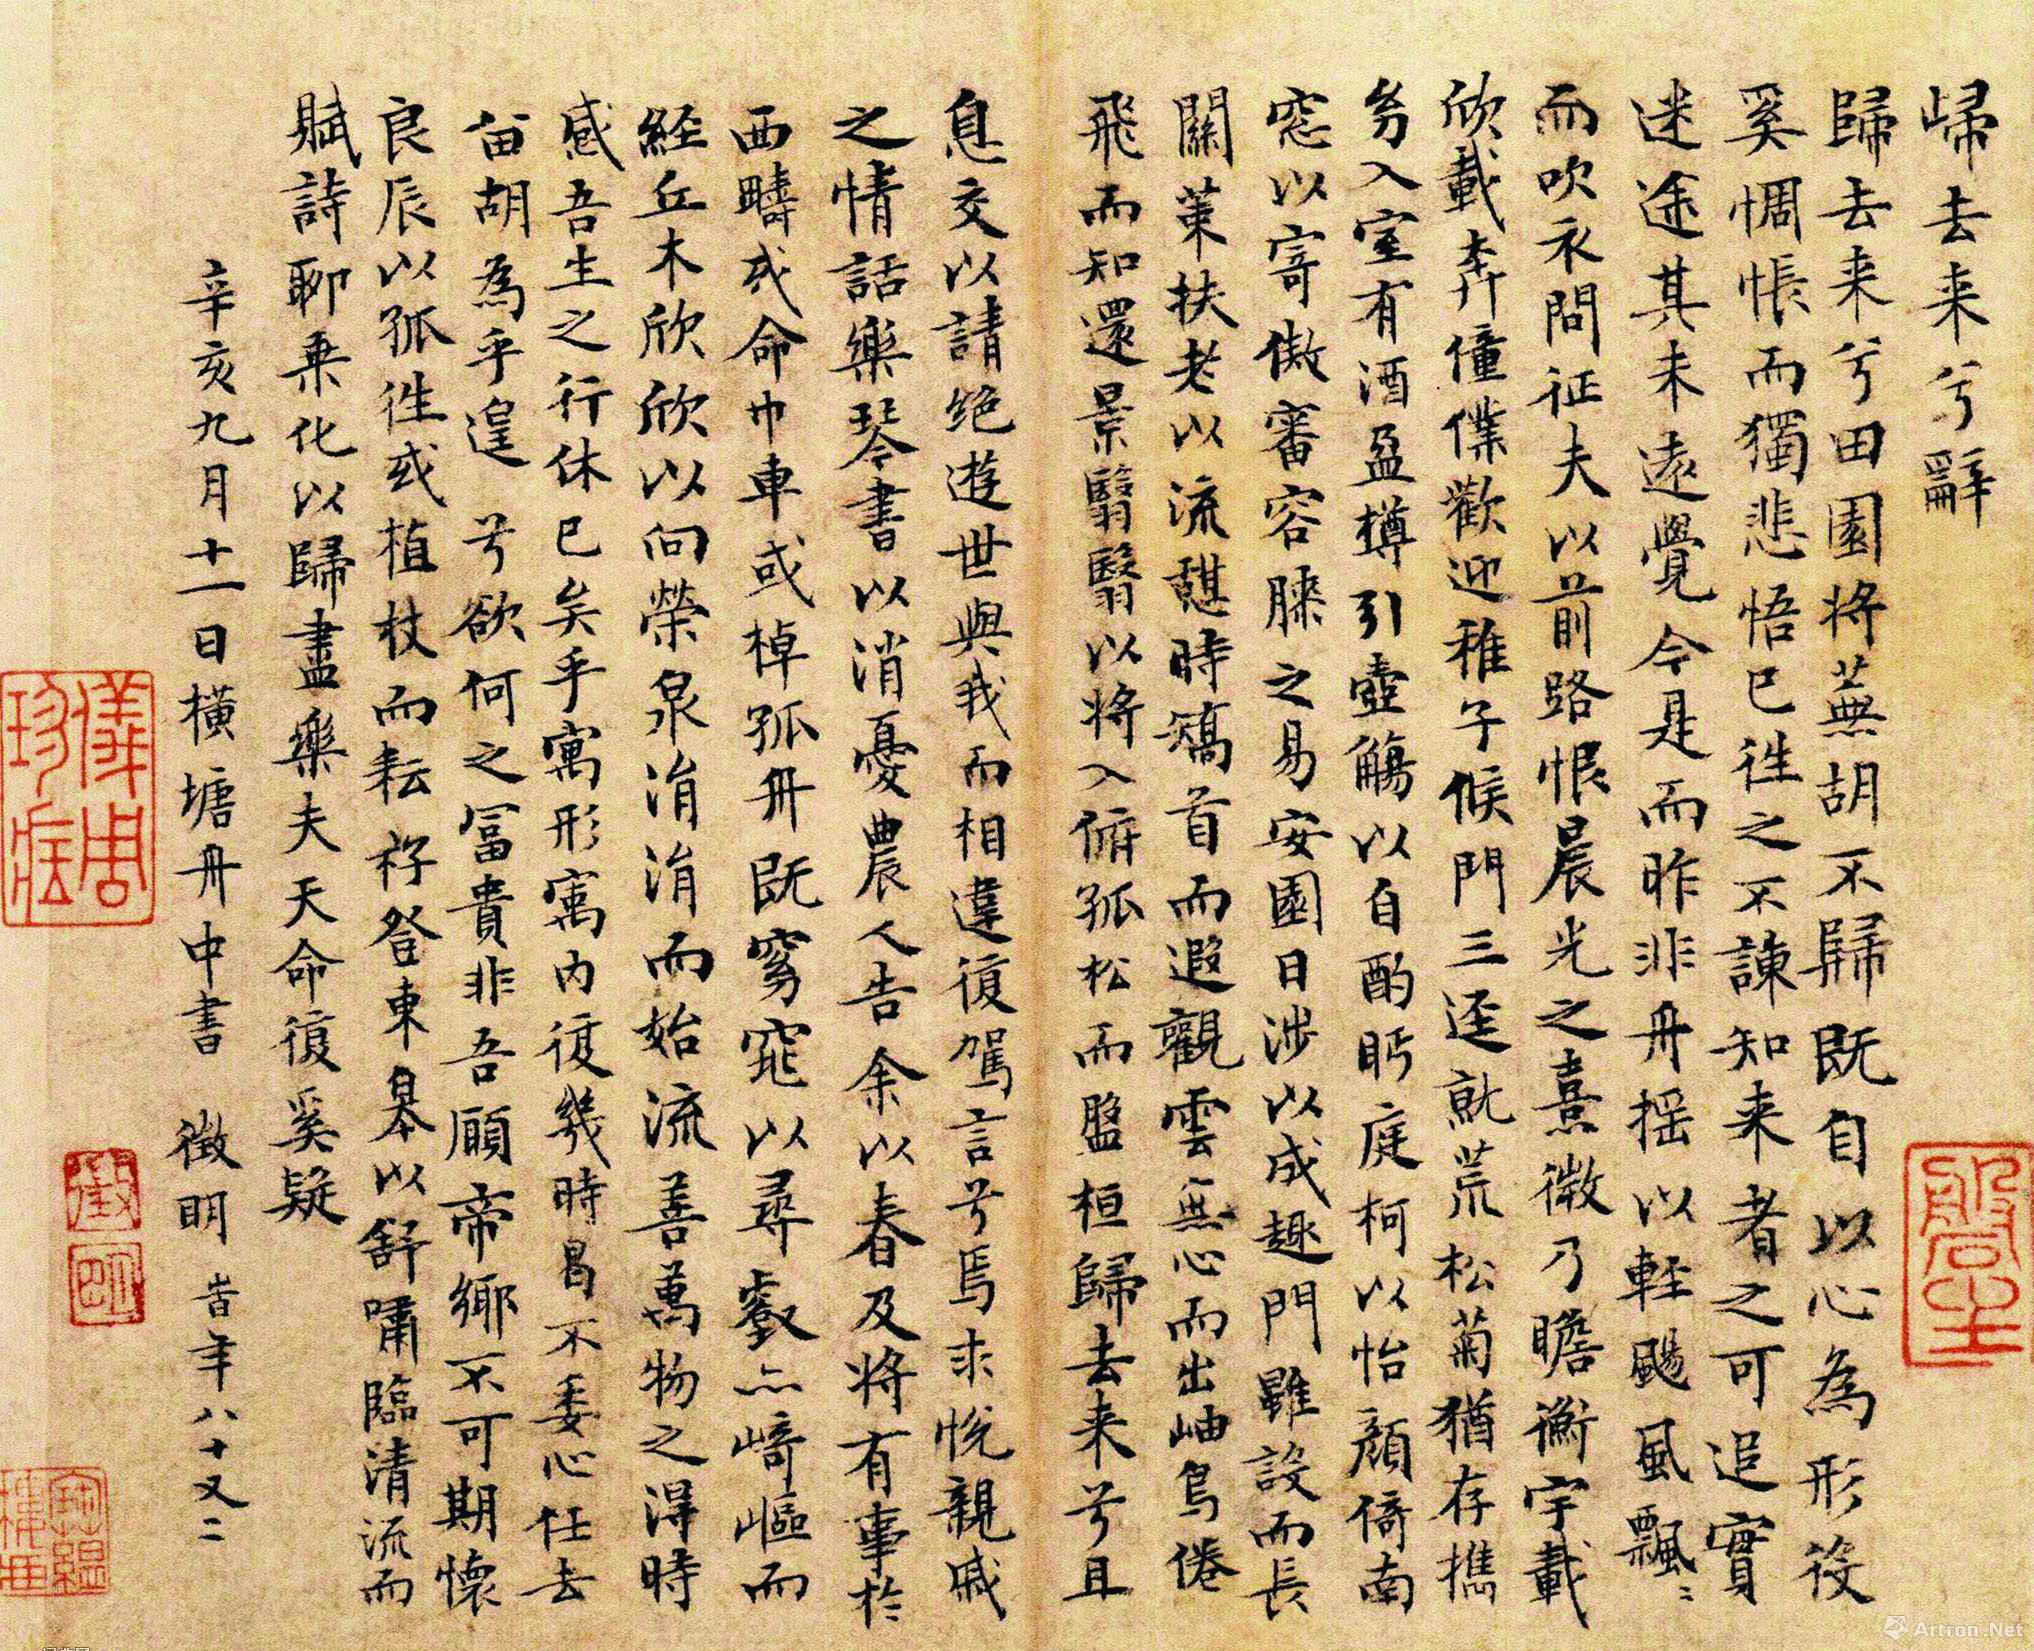 歸去来兮辭
歸去来兮田園将蕪胡不歸既自以心為形役
奚惆悵而獨悲悟已往之不諫知来者之可追實
迷途其未遠覺今是而昨非舟揺以軽颺風飄〻
而吹衣問征夫以前路恨晨光之熹微乃瞻衡宇載
欣載奔僮僕歡迎稚子候門三逕就荒松菊猶存攜
幼入室有酒盈樽引壺觴以自酌眄庭柯以怡顔倚南
窓以寄傲審容膝之易安園日涉以成趣門雖設而長
關策扶老以流憩時矯首而遐觀雲無心而出岫鳥倦
飛而知還景翳翳以将入俯孤松而盤桓歸去来兮且
息交以請絶遊世與我而相違復駕言兮焉求悅親戚
之情話樂琴書以消憂農人告余以春及将有事於
西疇或命巾車或棹孤舟既窈窕以尋壑亦崎嶇而
経丘木欣欣以向榮泉涓涓而始流善萬物之得時
感吾生之行休已矣乎寓形寓内復幾時曷不委心任去
留胡為乎遑兮欲何之冨貴非吾願帝鄉不可期懷
良辰以孤往或植杖而耘耔登東皋以舒嘯臨清流而
賦詩聊乗化以歸盡樂夫天命復奚疑
辛亥九月十一日橫塘舟中書 徵明 峕年八十又二
儀周珍藏
徵明
Artron.Net